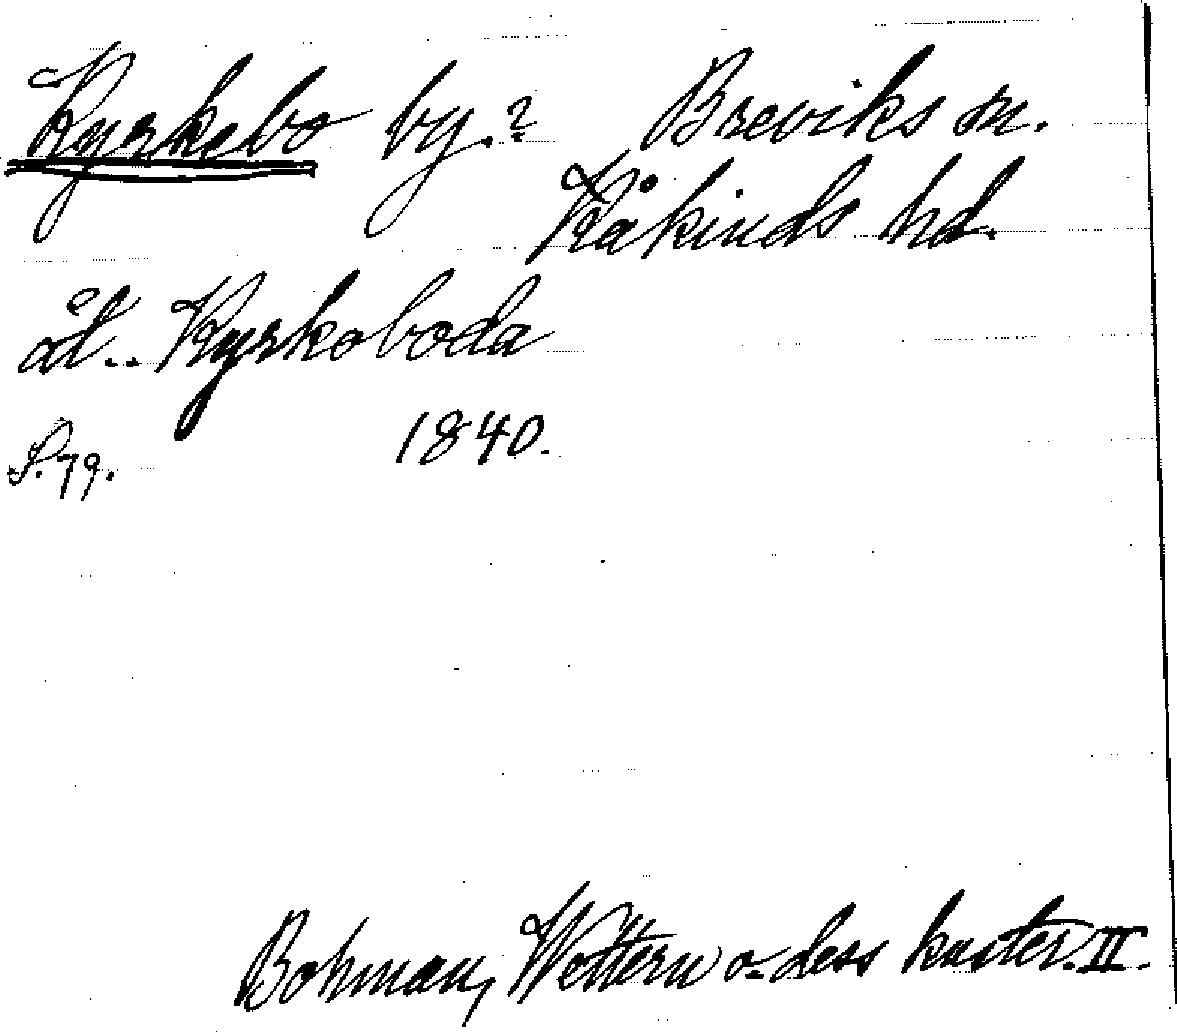 Kyrkebo by.? Breviks sn.
Kåkinds hd.
åt.. Kyrkoboda
S. 79. 1840.
Bohman, Wettern o. dess kuster. II.